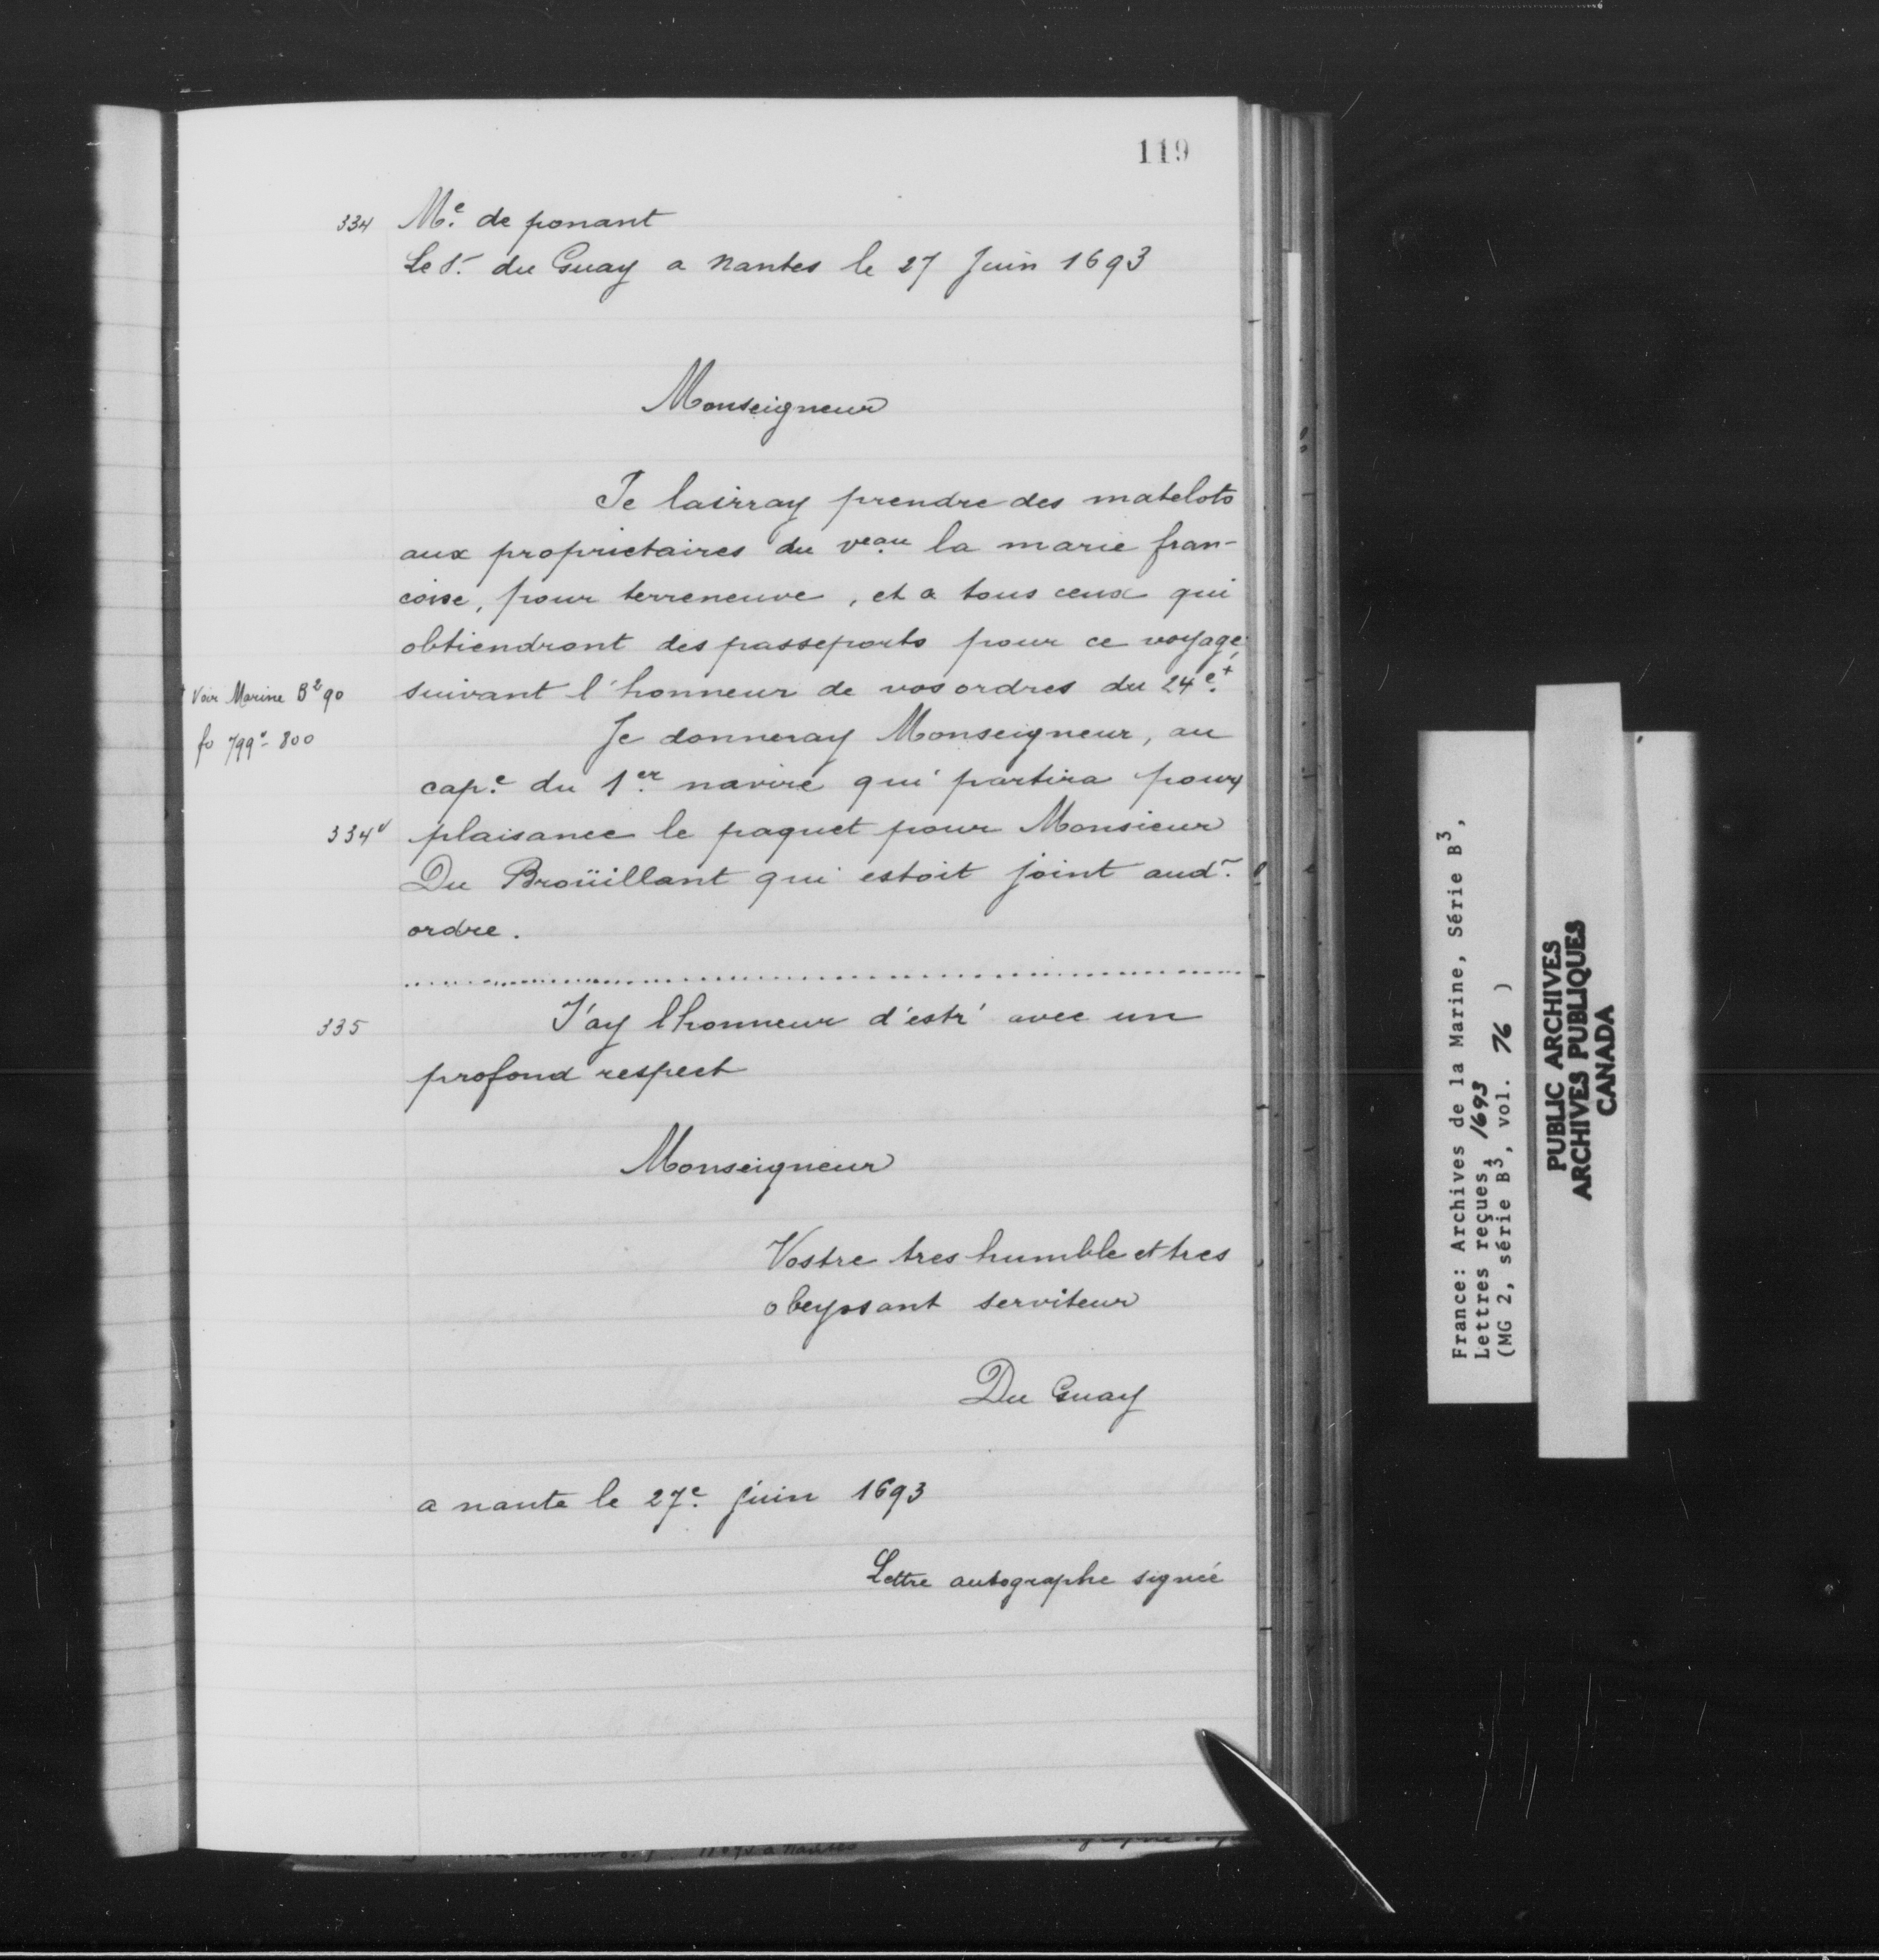 119
334 Me. de ponant
Le Sr. du Guay a Nantes le 27 Juin 1693
Monseigneur
Je lairray prendre des matelots
aux proprietaires du veau la marie fran-
coise, pour terreneuve, et a tous ceux qui
obtiendront des passeports pour ce voyage
suivant l'honneur de vos ordres du 24e.+
+ Voir Marine B2 90
fo 799v-800
Je donneray Monseigneur, au
cape. du 1er navire qui partira pour
334v plaisance le paquet pour Monsieur
Du Broüillant qui estoit joint aud.
ordre.
335 J'ay l'honneur d'estr' avec un
profond respect
Monseigneur
Vostre tres humble et tres
obeyssant serviteur
Du Guay
a nante le 27e. juin 1693
Lettre autographe signée
France: Archives de la Marine, Série B3,
Lettres reçues, 1693
(MG 2, série B3, vol. 76 )
PUBLIC ARCHIVES
ARCHIVES PUBLIQUES
CANADA